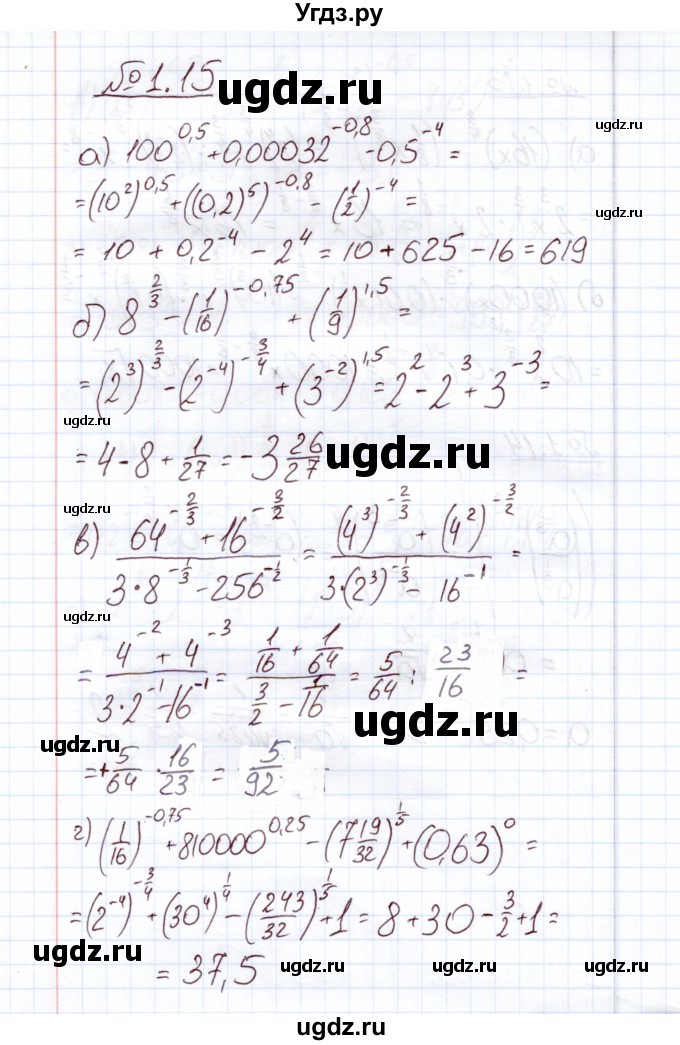 Угдз.ру
№1.15 ugdz.ru
а) 100^0,5 + 0,00032^-0,8 - 0,5^-4 =
= (10^2)^0,5 + ((0,2)^5)^-0,8 - (1/2)^-4 =
= 10 + 0,2^-4 - 2^4 = 10 + 625 - 16 = 619
б) 8^2/3 - (1/16)^-0,75 + (1/9)^1,5 =
= (2^3)^2/3 - (2^-4)^-3/4 + (3^-2)^1,5 = 2^2 - 2^3 + 3^-3 =
ugdz.ru
= 4 - 8 + 1/27 = -3 26/27 ugdz.ru
ugdz.ru
в) (64^-2/3 + 16^-3/2)/(3·8^-1/3 - 256^-1/2) = ((4^3)^-2/3 + (4^2)^-3/2)/(3·(2^3)^-1/3 - 16^-1) =
ugdz.ru
= (4^-2 + 4^-3)/(3·2^-1 - 16^-1) = (1/16 + 1/64)/(3/2 - 1/16) = 5/64 : 23/16 =
ugdz.ru
ugdz.ru
= +5/64 · 16/23 = 5/92
г) (1/16)^-0,75 + 810000^0,25 - (7 19/32)^1/5 + (0,63)^0 =
= (2^-4)^-3/4 + (30^4)^1/4 - (243/32)^1/5 + 1 = 8 + 30 - 3/2 + 1 =
= 37,5
ugdz.ru ugdz.ru ugdz.ru ugdz.ru
ugdz.ru